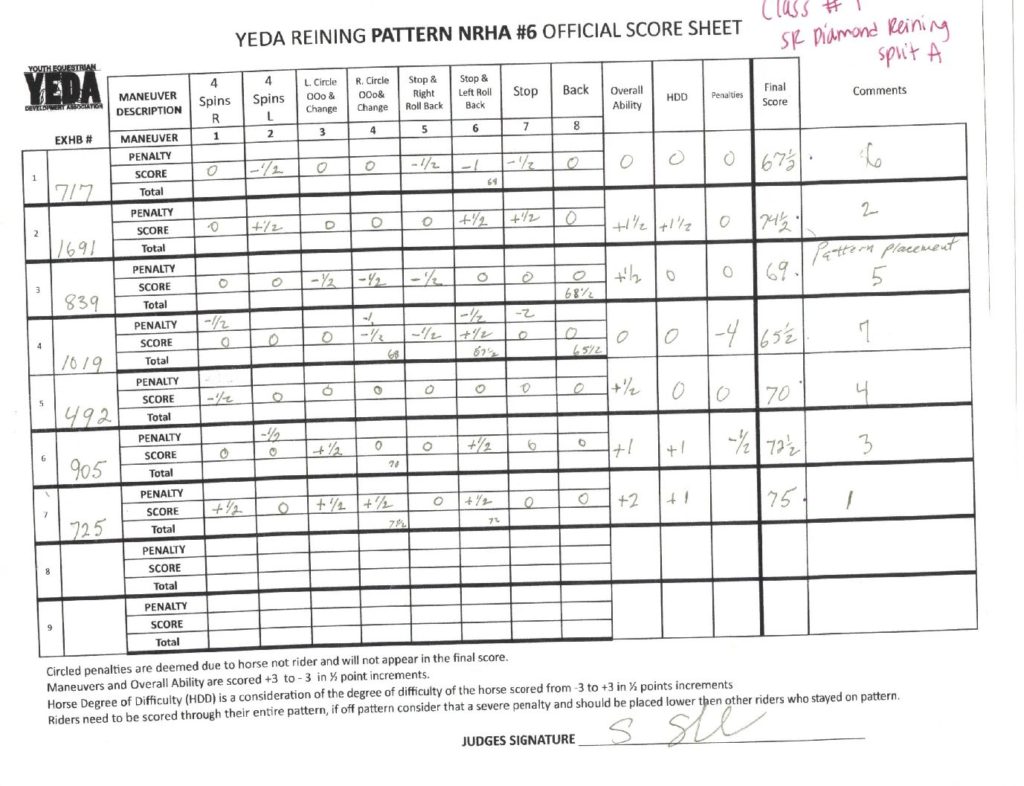 Class # 1
SR Diamond Reining
split A
YEDA REINING PATTERN NRHA #6 OFFICIAL SCORE SHEET
YOUTH EQUESTRIAN
YEDA
DEVELOPMENT ASSOCIATION
EXHB # MANEUVER DESCRIPTION 4 Spins R 4 Spins L L. Circle OOo & Change R. Circle OOo& Change Stop & Right Roll Back Stop & Left Roll Back Stop Back Overall Ability HDD Penalties Final Score Comments
MANEUVER 1 2 3 4 5 6 7 8
1 717
PENALTY
SCORE 0 -1/2 0 0 -1/2 -1 -1/2 0 0 0 0 67½ 6
Total 68
2 1691
PENALTY
SCORE 0 +1/2 0 0 0 +1/2 +1/2 0 +1½ +1½ 0 74½ 2
Total
3 839
PENALTY
SCORE 0 0 -1/2 -1/2 -1/2 0 0 0 +1/2 0 0 69 Pattern placement 5
Total 68½
4 1019
PENALTY -1/2 -1 -1/2 -2
SCORE 0 0 0 -1/2 -1/2 +1/2 0 0 0 0 -4 65½ 7
Total 68 67½ 65½
5 492
PENALTY
SCORE -1/2 0 0 0 0 0 0 0 +1/2 0 0 70 4
Total
6 905
PENALTY -1/2
SCORE 0 0 +1/2 0 0 +1/2 0 0 +1 +1 -1/2 72½ 3
Total 70
7 725
PENALTY
SCORE +1/2 0 +1/2 +1/2 0 +1/2 0 0 +2 +1 75 1
Total 71½ 72
8
PENALTY
SCORE
Total
9
PENALTY
SCORE
Total
Circled penalties are deemed due to horse not rider and will not appear in the final score.
Maneuvers and Overall Ability are scored +3 to - 3 in ½ point increments.
Horse Degree of Difficulty (HDD) is a consideration of the degree of difficulty of the horse scored from -3 to +3 in ½ points increments
Riders need to be scored through their entire pattern, if off pattern consider that a severe penalty and should be placed lower then other riders who stayed on pattern.
JUDGES SIGNATURE